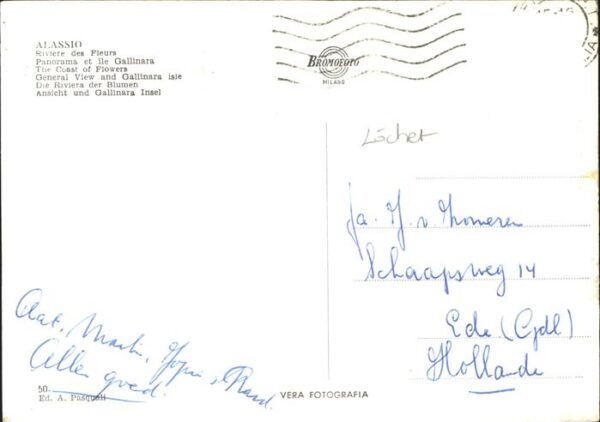 ALASSIO
Riviere des Fleurs
Panorama et île Gallinara
The Coast of Flowers
General View and Gallinara isle
Die Riviera der Blumen
Ansicht und Gallinara Insel
BROMOFOTO
MILANO
Löchet
Fa. H. v. Zomeren
Schaapsweg 14
Ede (Gdl)
Hollande
Aat, Martin, Jopie
Alles goed.
50.
Ed. A. Pasquali
VERA FOTOGRAFIA